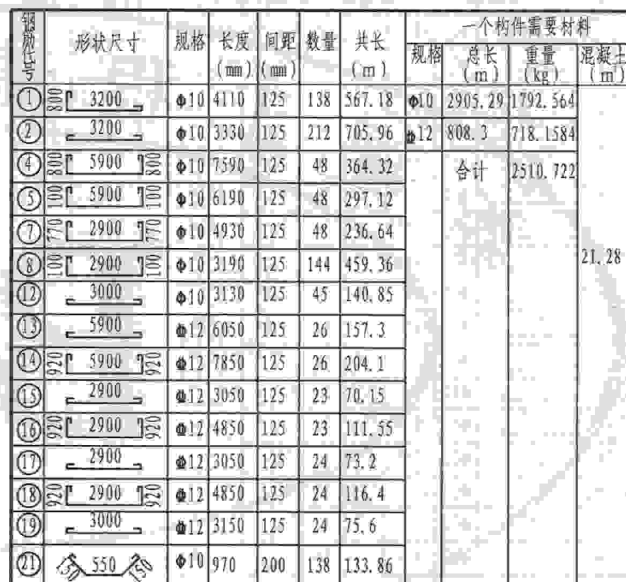 钢筋代号 形状尺寸 规格 长度(mm) 间距(mm) 数量 共长(m) 一个构件需要材料
规格 总长(m) 重量(kg) 混凝土(m³)
① 800 3200 Φ10 4110 125 138 567.18 Φ10 2905.29 1792.564
② 3200 Φ10 3330 125 212 705.96 Φ12 808.3 718.1584
④ 800 5900 800 Φ10 7590 125 48 364.32 合计 2510.722
⑤ 100 5900 100 Φ10 6190 125 48 297.12
⑦ 770 2900 770 Φ10 4930 125 48 236.64
⑧ 100 2900 100 Φ10 3190 125 144 459.36 21.28
⑫ 3000 Φ10 3130 125 45 140.85
⑬ 5900 Φ12 6050 125 26 157.3
⑭ 920 5900 920 Φ12 7850 125 26 204.1
⑮ 2900 Φ12 3050 125 23 70.15
⑯ 920 2900 920 Φ12 4850 125 23 111.55
⑰ 2900 Φ12 3050 125 24 73.2
⑱ 920 2900 920 Φ12 4850 125 24 116.4
⑲ 3000 Φ12 3150 125 24 75.6
㉑ 150 550 150 Φ10 970 200 138 133.86